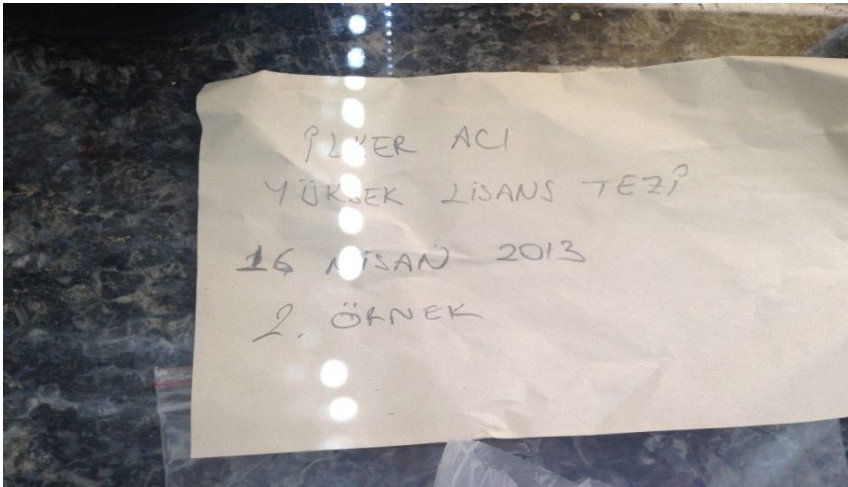 İLKER ACI
YÜKSEK LİSANS TEZİ
16 NİSAN 2013
2. ÖRNEK